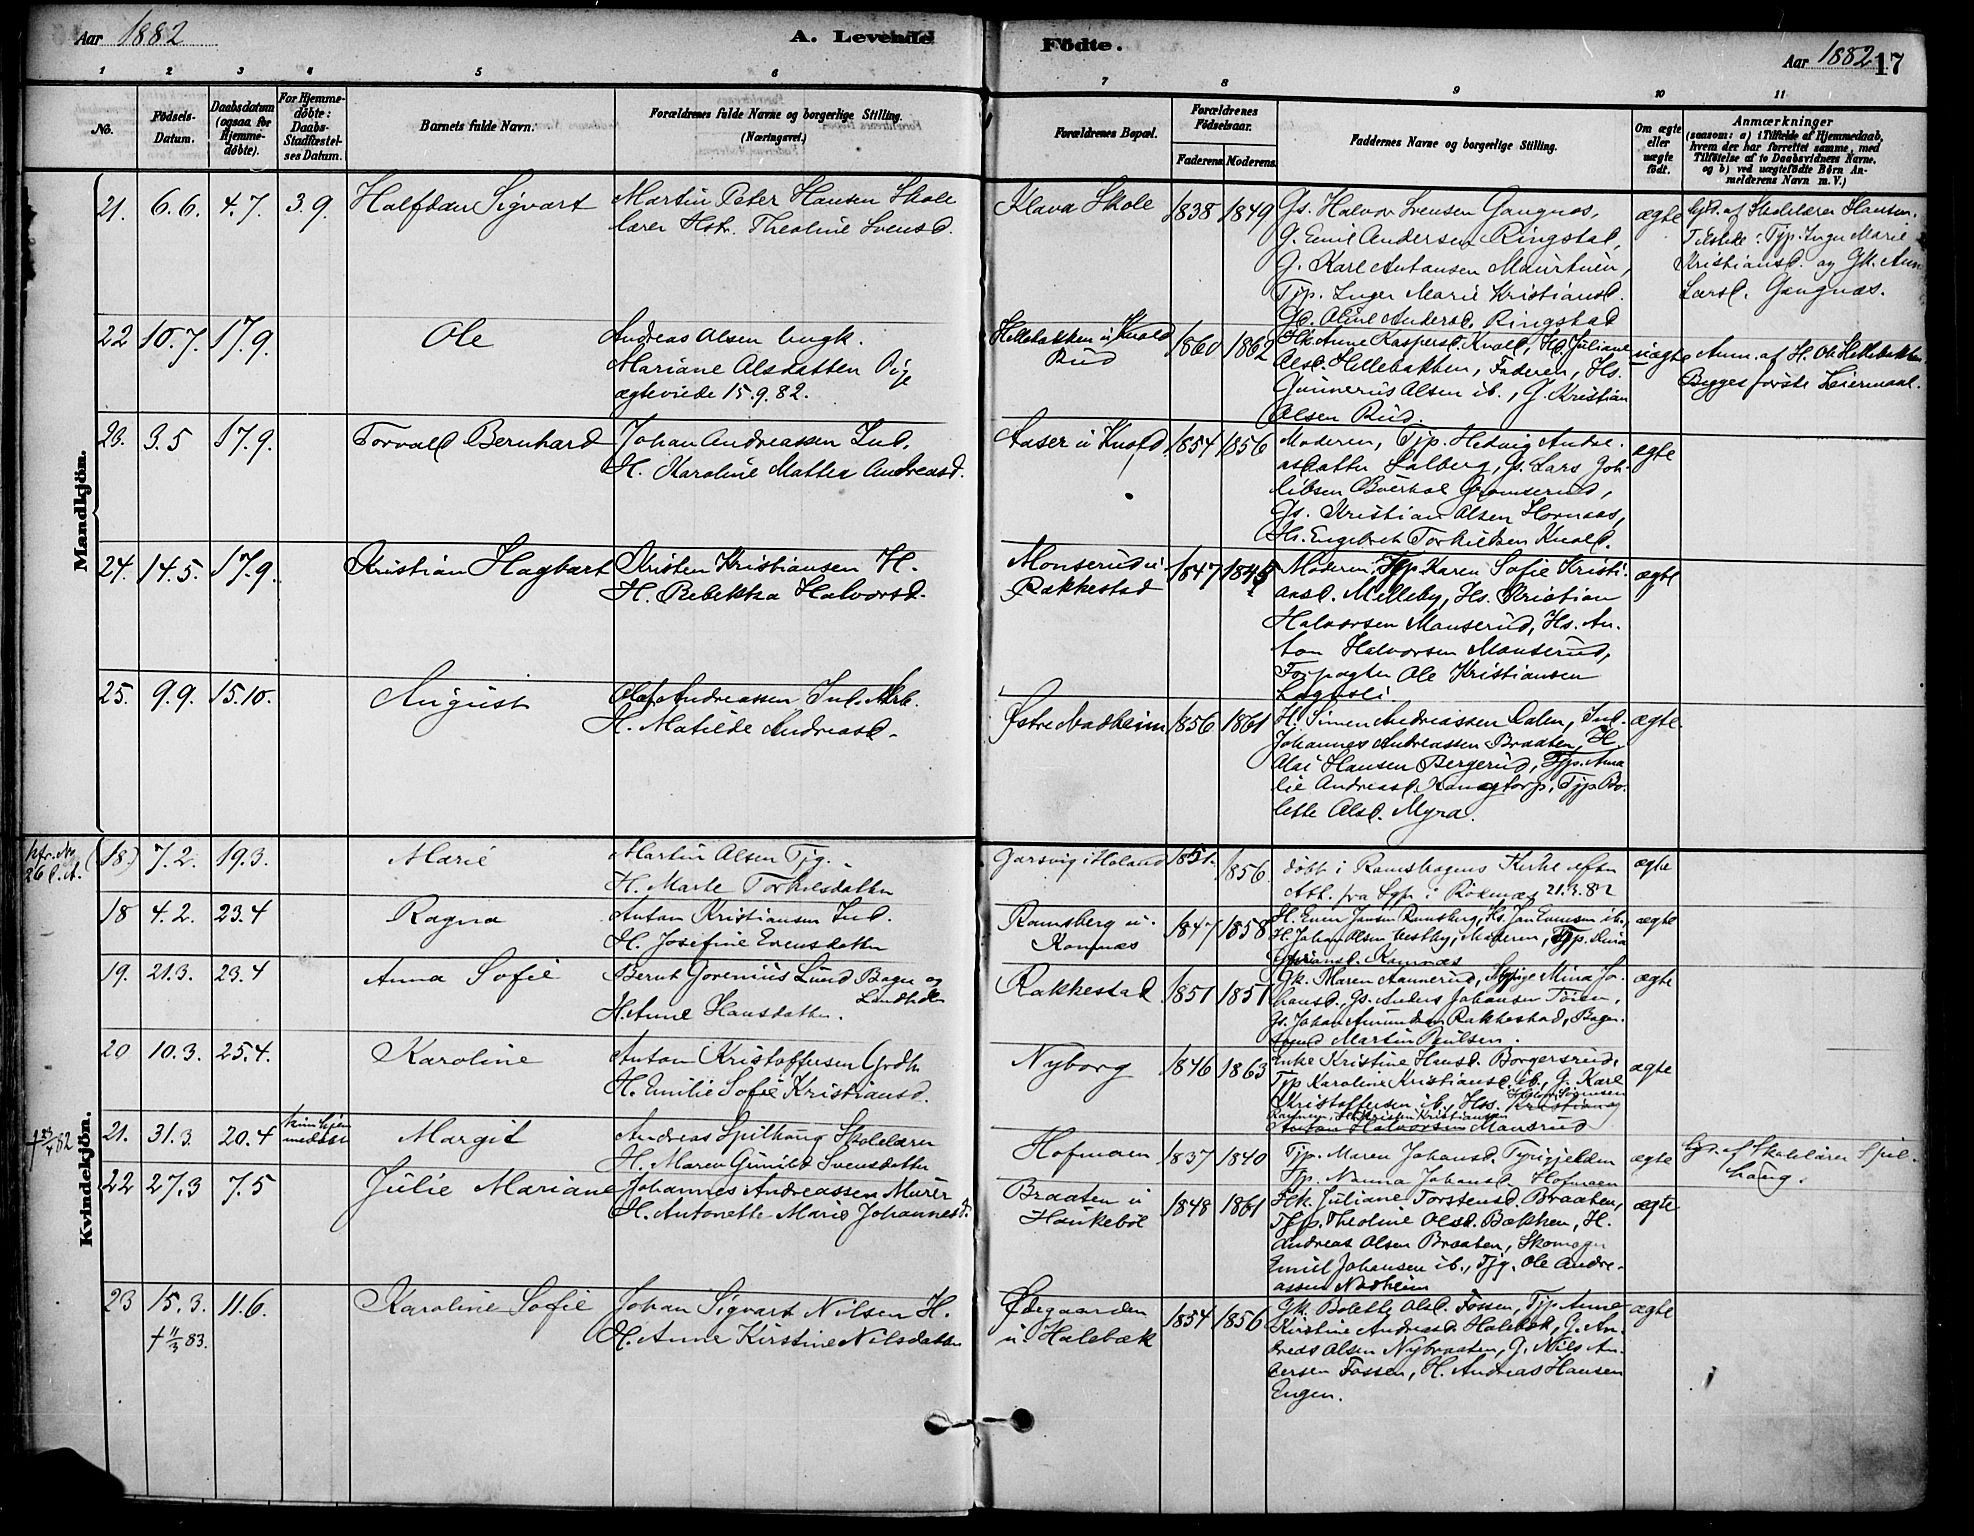 Aar 1882
A. Levende
Födte.
Aar 1882
17
1 2 3 4 5 6 7 8 9 10 11
No.
Födsels-Datum.
Daabsdatum (ogsaa for Hjemmedöbte).
For Hjemmedöbte: Daabs-Stadfæstelses Datum.
Barnets fulde Navn.
Forældrenes fulde Navne og borgerlige Stilling.
(Næringsvei.)
Forældrenes Bopæl.
Forældrenes Födselsaar.
Faderens. Moderens.
Faddernes Navne og borgerlige Stilling.
Om ægte eller uægte födt.
Anmærkninger
(saasom: a) i Tilfælde af Hjemmedaab,
hvem der har forrettet samme, med
Tilföielse af to Daabsvidners Navne.
og b) ved uægtefödte Börn An-
melderens Navn m. V.)
Mandkjön.
21. 6.6. 4.7. 3.9. Halfdan Sigvart
Martin Peter Hansen Skole
lærer Hstr. Theoline Svensd.
Klava Skole 1838 1849
Gs. Halvor Svensen Gangnæs,
G. Emil Andersen Ringstad,
G. Karl Antonsen
Tjp. Inger Marie Kristiansd.
Gd. Oline Andersd. Ringstad
ægte
Hjd. af Skolelærer Hansen.
Tilstede: Tjp. Inger Marie
Kristiansd. og Gk.
Larsd. Gangnæs.
22 10.7. 17.9. Ole
Andreas Olsen Ungk.
Mariane Olsdatten Pige
ægteviede 15.9.82.
Hellebækken u/ Kvold
Rud
1860 1862
Hk. Anne Kaspersd. Kvold, Hd. Juliane
Olsd. Hellebækken, Faderen, Hs.
Gunnerius Olsen ib., G. Kristian
Olsen Rud.
uægte
Anm. af H. Ole Hellebækken
Begges første Leiermaal.
23. 3.5 17.9. Torvald Bernhard
Johan Andreassen Ind.
H. Karoline Mathea Andreasd.
Aaser u/ Kvold 1854 1856
Moderen, Tjp. Hedvig Andre-
asdatter Solberg, Gs. Lars
Gs. Kristian Olsen Hornæs,
Hs. Engebret Torkildsen Kvold.
ægte
24. 14.5. 17.9. Kristian Hagbart
Kristen Kristiansen H.
H. Rebekka Halvorsd.
Monserud u/
Rakkestad
1847 1845
Moderen, Tjp. Karen Sofie Kristi-
ansd. Melleby, Hs. Kristian
Halvorsen Monserud, Hs. An-
ton Halvorsen Monserud,
Forpagter Ole Kristiansen
ægte
25. 9.9. 15.10. August
Olaf Andreassen Ind. Arb.
H. Matilde Andreasd.
Østre Nadheim 1856 1861
H. Simen Andreassen Dalen, Ind.
Johannes Andreassen Braaten, H.
Olai Hansen Bergerud, Tjp. Ama
lie Andreasd. Tjp. Bo-
lette Olsd. Myra.
ægte
Kvindekjön.
(18.) 7.2. 19.3. Marie
Martin Olsen Tjg.
H. Marte Torkilsdatter
Garsvig i Høland 1851. 1856
døbt i Kirke efter
Att. fra Sgp. i Rødenæs 21.3.82
ægte
18 4.2. 23.4 Ragna
Anton Kristiansen Ind.
H. Josefine Evensdatter
Ramsberg u/
Komnæs
1847 1858
H. Even Jansen Ramsberg, Hs. Jan Evensen ib.,
H. Johan Olsen Vestby, Moderen, Tjp.
ægte
19. 21.3. 23.4 Anna Sofie
Bernt Gorenius Lund Bager og
H. Anne Hansdatter.
Rakkestad 1851 1851
Gk. Maren Aannerud, Sypige Mina Jo-
hansd., Gs. Anders Johansen Tøien,
Gs. Johan Amundsen Rakkestad, Bager-
svend Martin Paulsen.
ægte
20 10.3. 25.4. Karoline
Anton Kristoffersen Grdbr.
H. Emilie Sofie Kristiansd.
Nyborg 1846 1863
Enke Kristine Hansd. Borgersrud,
Tjp Karoline Kristiansd. ib., G. Karl
Kristoffersen ib., Hss.
Anton Halvorsen Monsrud
ægte
21. 31.3. 20.4 Margit
Andreas Spilhaug Skolelærer
H. Maren Gunild Svensdatter
Hofmoen 1837 1840
Tjp. Maren Johansd. Tyrigjelden
Tjp. Nanna Johansd. Hofmoen
ægte
Hjd. af Skolelærer Spil-
haug.
22 27.3 7.5 Julie Mariane
Johannes Andreassen Murer
H. Antonette Marie Johannesd.
Braaten u/
Haukebøl
1848 1861
Hk. Juliane Torstensd. Braaten,
Tjp. Theoline Olsd. Bækken, H.
Andreas Olsen Braaten, Skomager
Emil Johansen ib., Tjg. Ole Andre-
assen Nadheim
ægte
23 15.3. 11.6. Karoline Sofie
† 11/3 83.
Johan Sigvart Nilsen H.
H. Anne Kirstine Nilsdatter
Ødegaarden
u/ Holebæk
1854 1856
Gk. Bolette Olsd. Fossen, Tjp. Anne
Kirstine Andreasd. Holebæk, G. An-
dreas Olsen Nybraaten, G. Nils An-
dersen Fossen, H. Andreas Hansen
Engen.
ægte